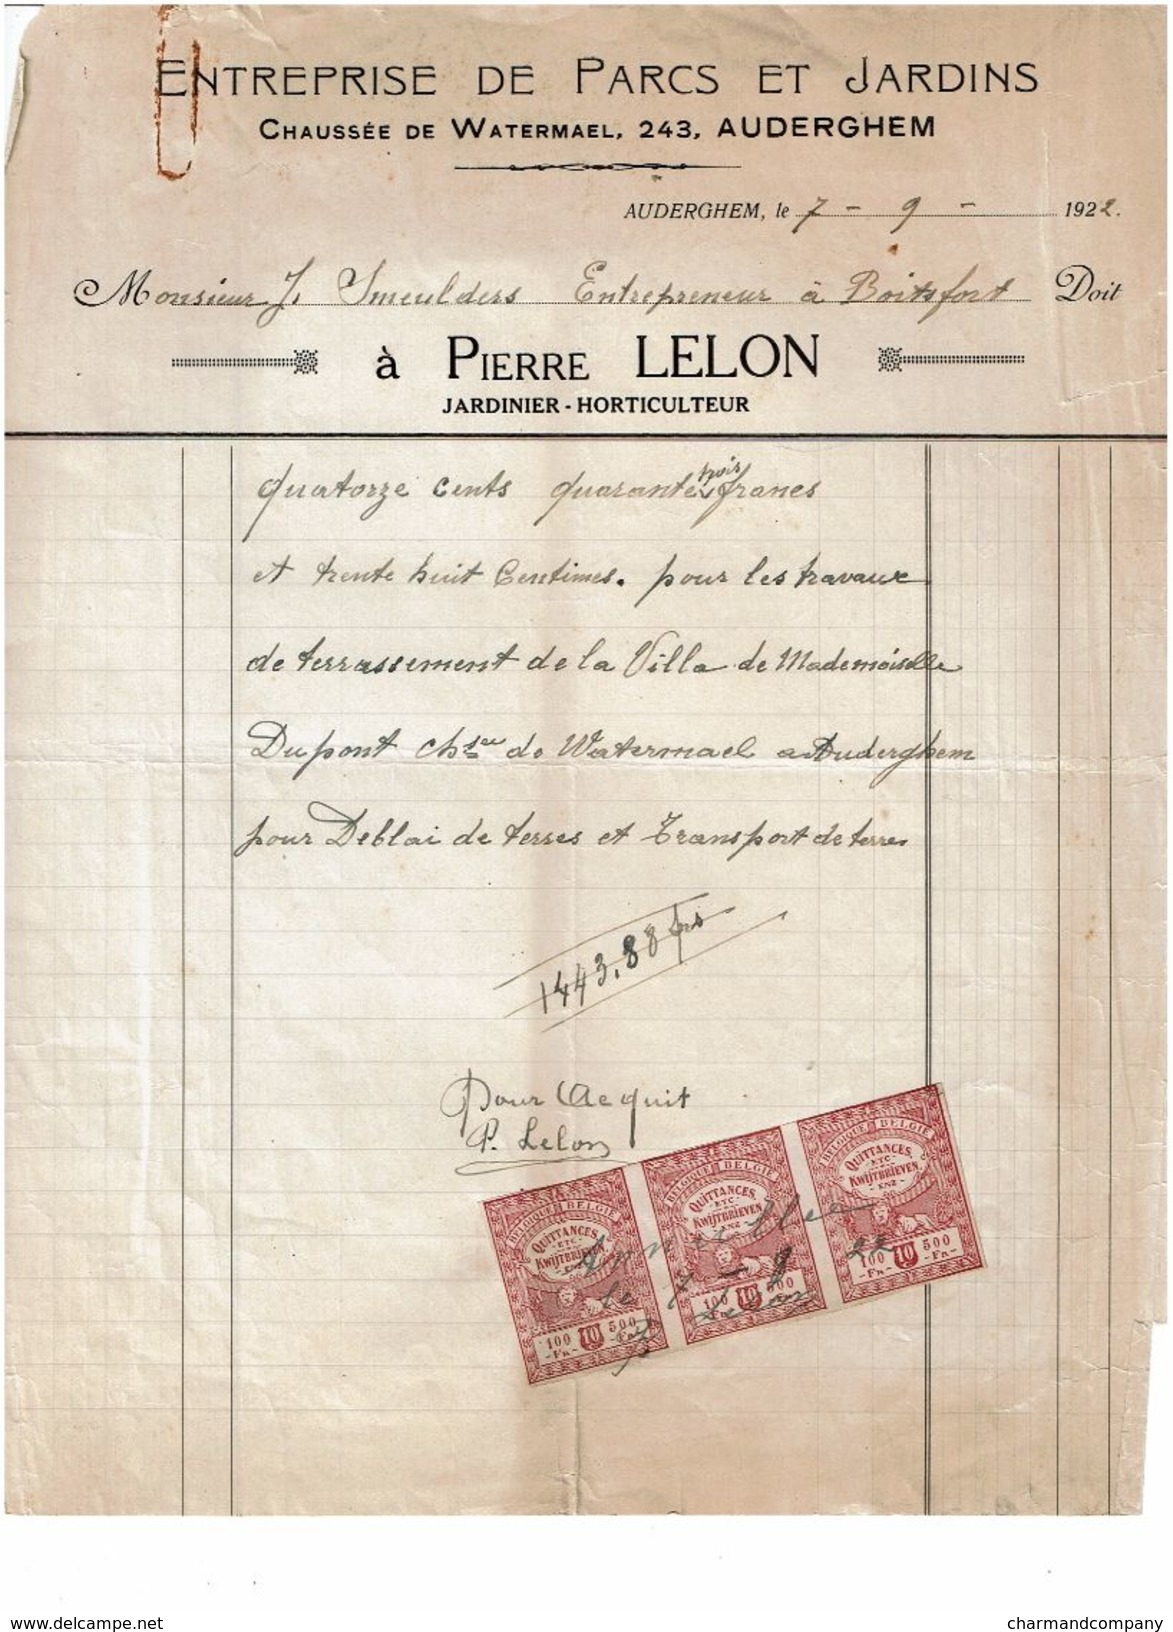 ENTREPRISE DE PARCS ET JARDINS
CHAUSSÉE DE WATERMAEL, 243, AUDERGHEM
AUDERGHEM, le 7 - 9 - 1922.
Monsieur J. Smeulders Entrepreneur à Boitsfort Doit
à PIERRE LELON
JARDINIER - HORTICULTEUR
trois
quatorze cents quarante francs
et trente huit Centimes. pour les travaux
de terrassement de la Villa de Mademoiselle
Dupont chsée de Watermael a Auderghem
pour Deblai de terres et Transport de terres
1443.88 frs
Pour Acquit
P. Lelon
BELGIQUE BELGIË
QUITTANCES, ETC
KWIJTBRIEVEN, ENZ
100 10 500
-FR- -FR-
BELGIQUE BELGIË
QUITTANCES, ETC
KWIJTBRIEVEN, ENZ
100 10 500
BELGIQUE BELGIË
QUITTANCES, ETC
KWIJTBRIEVEN, ENZ
100 10 500
-FR- -FR-
le 7 - 9 22
P. Lelon
www.delcampe.net
charmandcompany